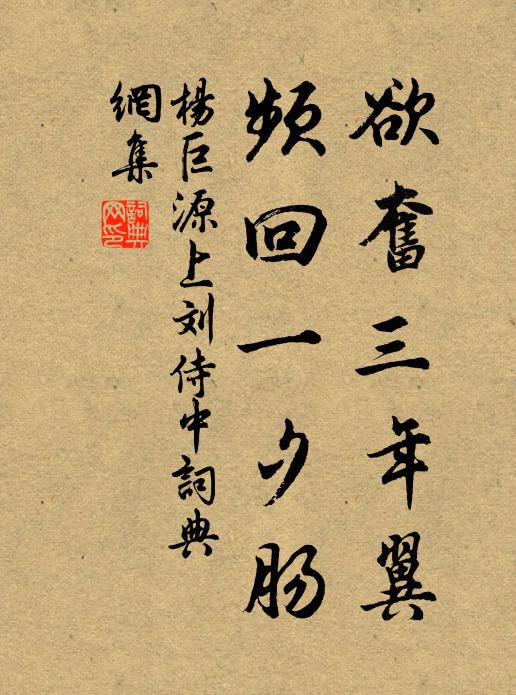 欲奮三年翼
頻回一夕腸
楊巨源上刘侍中詞典
網集
詞典
网印